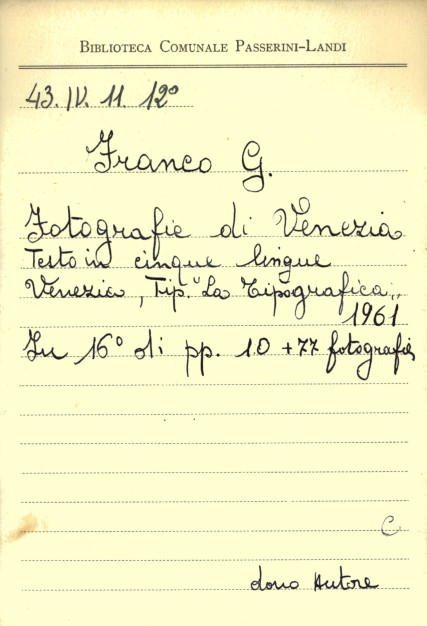 BIBLIOTECA COMUNALE PASSERINI-LANDI
43. IV. 11. 12°
Franco G.
Fotografie di Venezia
Testo in cinque lingue
Venezia, Tip. "La Tipografica"
1961
In 16° di pp. 10 + 77 fotografie
C
dono Autore